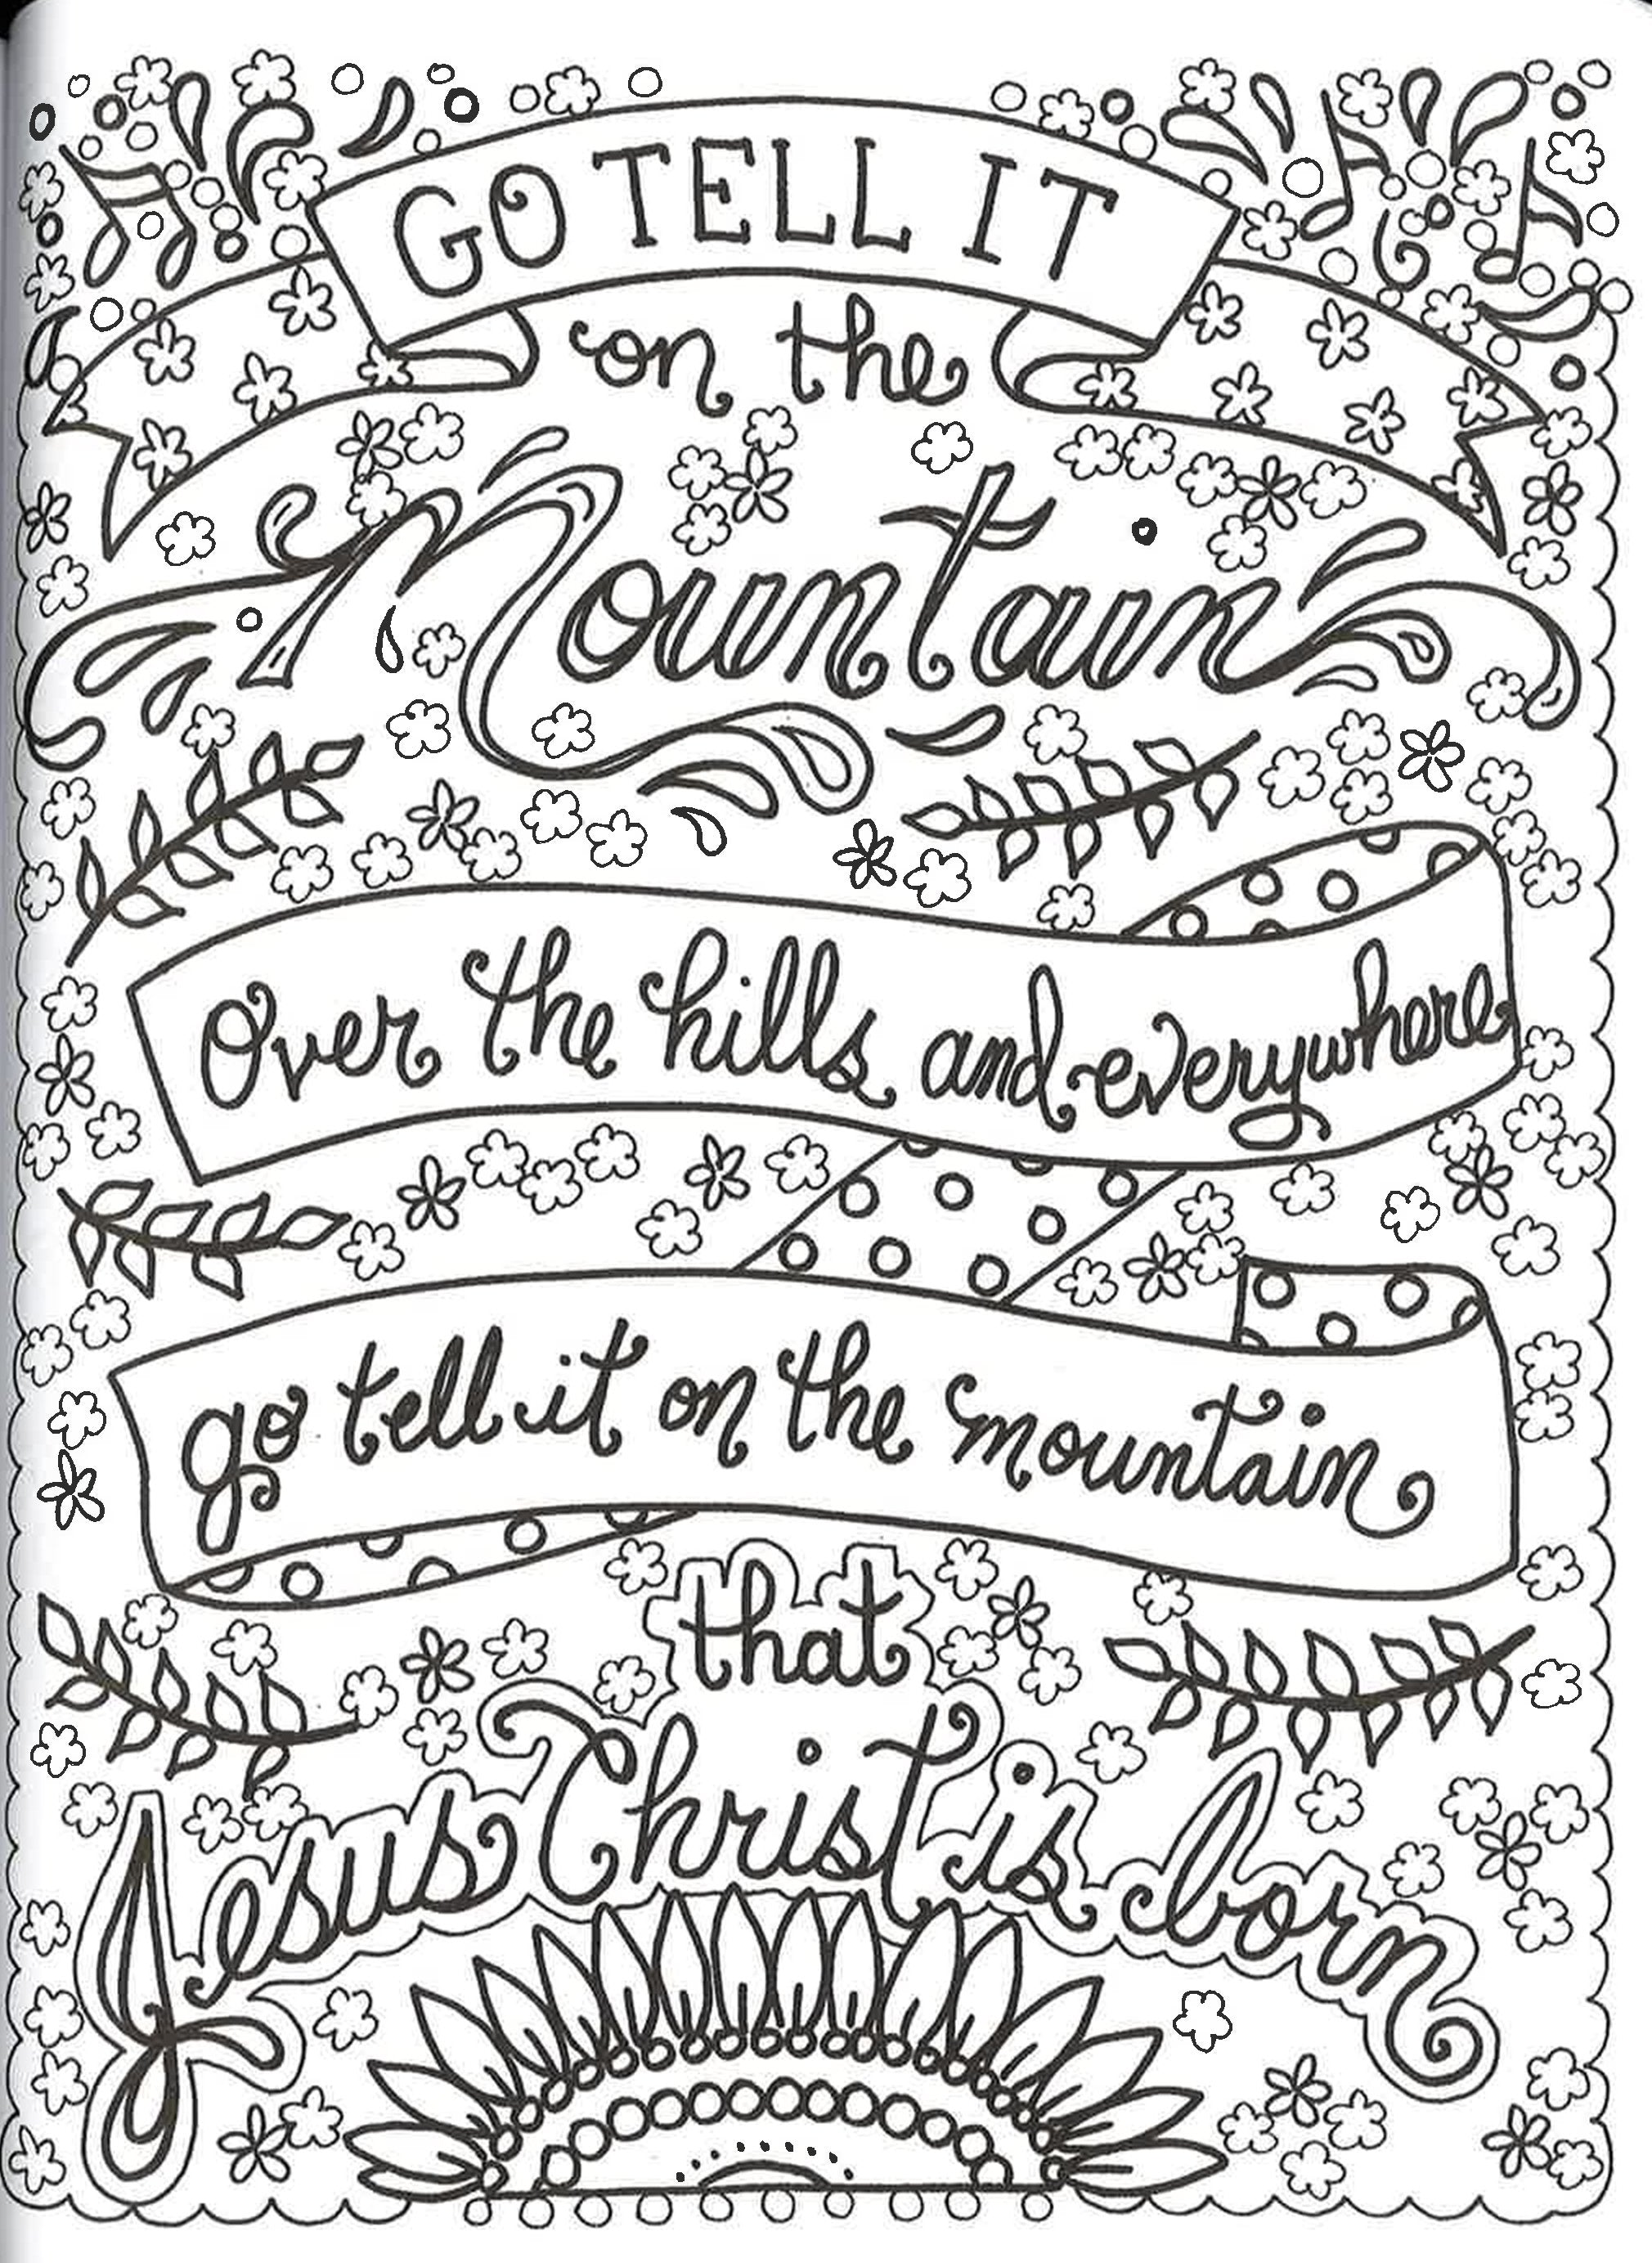 GO TELL IT
on the
Mountain
Over the hills and everywhere
go tell it on the mountain
that
Jesus Christ is born